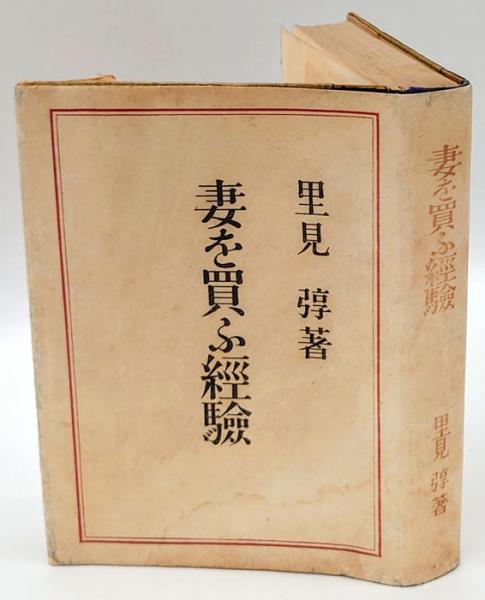 里見 弴著
妻を買ふ經驗
妻を買ふ經驗
里見 弴著